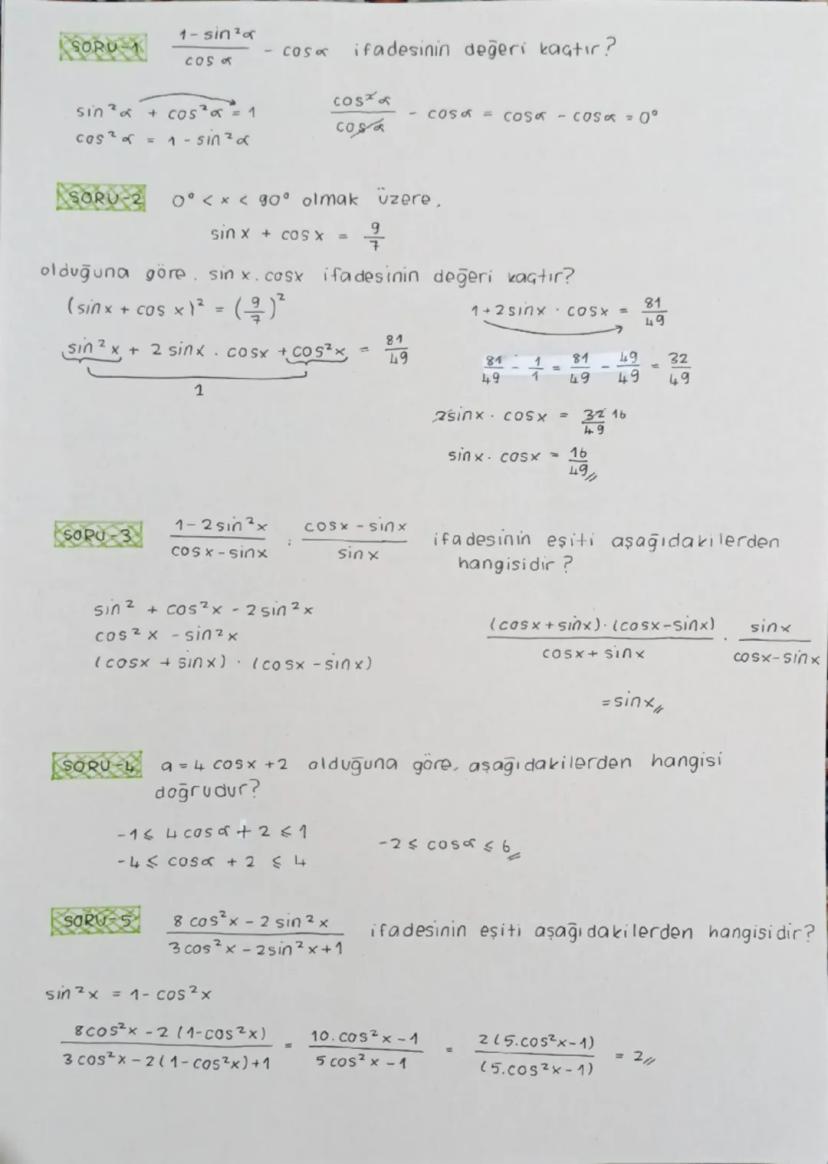 SORU-1 (1-sin²α)/(cos α) - cosα ifadesinin değeri kaçtır?
sin²α + cos²α = 1
cos²α = 1 - sin²α
(cos²α)/(cosα) - cosα = cosα - cosα = 0°
SORU-2 0° < x < 90° olmak üzere,
sin x + cos x = 9/7
olduğuna göre, sin x . cosx ifadesinin değeri kaçtır?
(sinx + cos x)² = (9/7)²
sin²x + 2 sinx . cosx + cos²x = 81/49
1
1+2sinx · cosx = 81/49
81/49 - 1/1 = 81/49 - 49/49 = 32/49
2sinx · cosx = 32/49 16
sinx · cosx = 16/49
SORU-3 (1-2sin²x)/(cosx-sinx) : (cosx-sinx)/(sinx) ifadesinin eşiti aşağıdakilerden
hangisidir?
sin² + cos²x - 2sin²x
cos²x - sin²x
(cosx + sinx) · (cosx - sinx)
((cosx+sinx)·(cosx-sinx))/(cosx+sinx) · (sinx)/(cosx-sinx)
=sinx
SORU-4 a = 4 cosx +2 olduğuna göre, aşağıdakilerden hangisi
doğrudur?
-1 ≤ 4cosα + 2 ≤ 1
-4 ≤ cosα + 2 ≤ 4
-2 ≤ cosα ≤ 6
SORU-5 (8 cos²x - 2 sin²x)/(3 cos²x - 2sin²x+1) ifadesinin eşiti aşağıdakilerden hangisidir?
sin²x = 1- cos²x
(8cos²x - 2(1-cos²x))/(3cos²x - 2(1-cos²x)+1) = (10.cos²x - 1)/(5cos²x - 1) = (2(5.cos²x-1))/((5.cos²x-1)) = 2